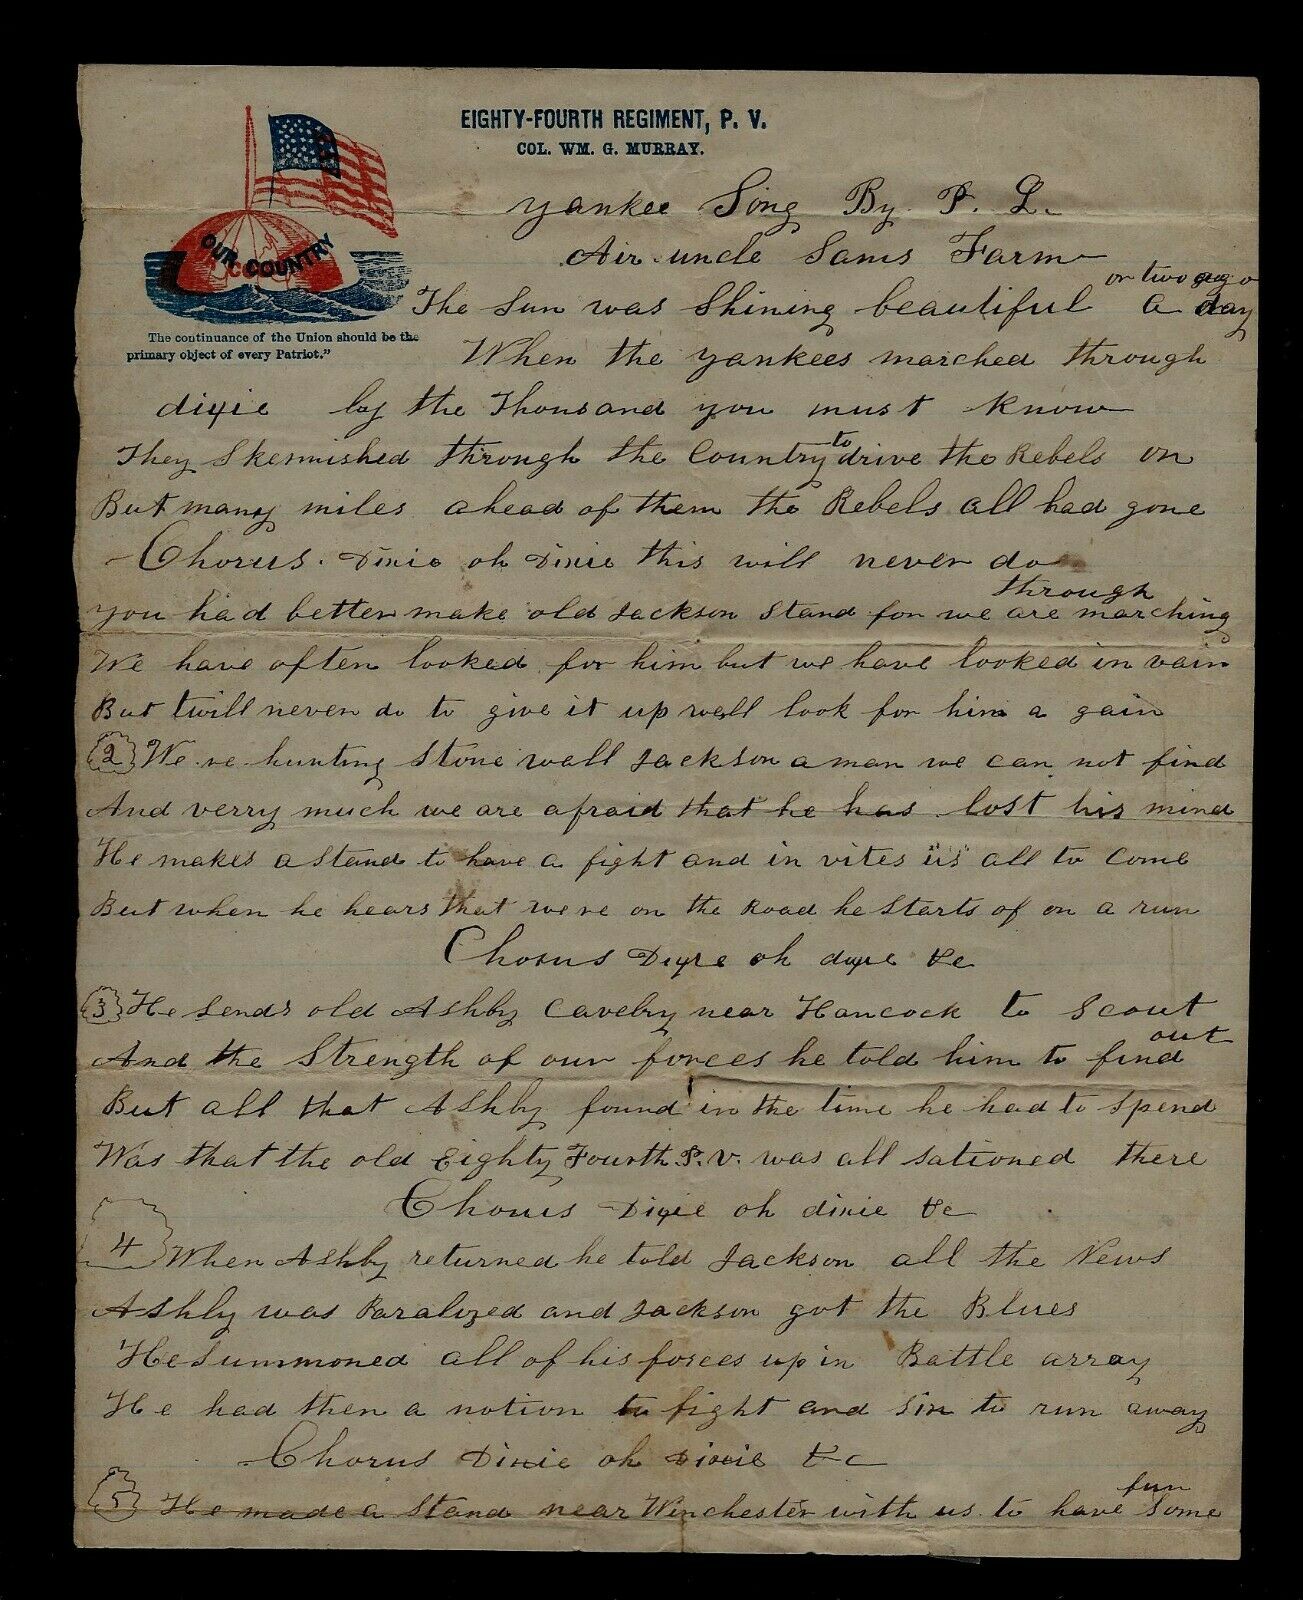 EIGHTY-FOURTH REGIMENT, P. V.
COL. WM. G. MURRAY.
OUR COUNTRY
The continuance of the Union should be the
primary object of every Patriot."
Yankee Song By P. L.
Air uncle Sams Farm
The Sun was Shining beautiful a day or two ago
When the yankees marched through
dixie by the Thousand you must know
They Skermished through the Country to drive the Rebels on
But many miles ahead of them the Rebels all had gone
Chorus. Dixie oh Dixie this will never do
you had better make old Jackson Stand for we are marching through
We have often looked for him but we have looked in vain
But twill never do to give it up well look for him a gain
2 We re hunting Stone wall Jackson a man we can not find
And verry much we are afraid that he has lost his mind
He makes a Stand to have a fight and in vites us all to Come
But when he hears that we re on the Road he Starts of on a run
Chorus Dixie oh dixie &c
3 He Sends old Ashby Cavelry near Hancock to Scout
And the Strength of our forces he told him to find out
But all that Ashby found in the time he had to Spend
Was that the old Eighty Fourth P. V. was all Sationed there
Chorus Dixie oh dixie &c
4 When Ashby returned he told Jackson all the News
Ashby was Paralized and Jackson got the Blues
He Summoned all of his forces up in Battle array
He had then a notion to fight and Sin to run away
Chorus Dixie oh Dixie &c
5 He made a Stand near Winchester with us to have Some fun